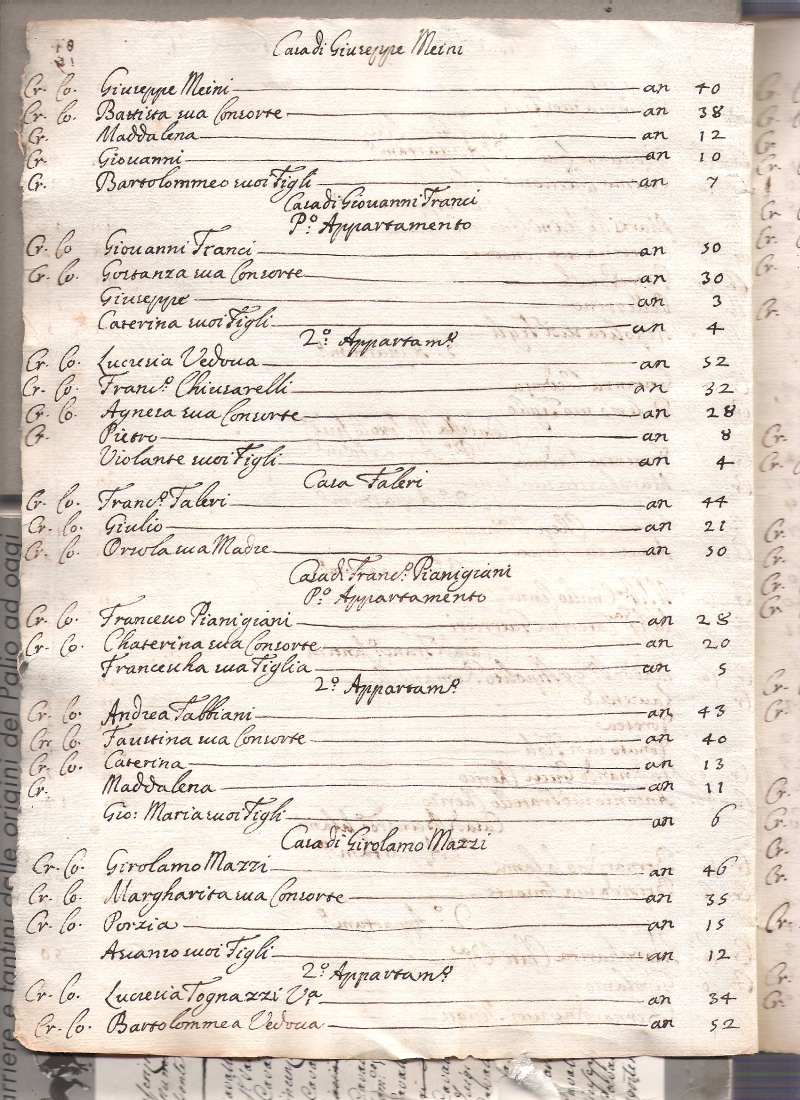 Casa di Giuseppe Meini
Cr. Co. Giuseppe Meini an 40
Cr. Co. Battista sua Consorte an 38
Cr. Maddalena an 12
Cr. Giovanni an 10
Cr. Bartolommeo suoi Figli an 7
Casa di Giovanni Franci
P.º Appartamento
Cr. Co Giovanni Franci an 50
Cr. Co. Gostanza sua Consorte an 30
Giuseppe an 3
Caterina suoi Figli an 4
2.º Appartam.º
Cr. Co. Lucresia Vedova an 52
Cr. Co. Franc.º Chiusarelli an 32
Cr. Co. Agnesa sua Consorte an 28
Cr. Pietro an 8
Violante suoi Figli an 4
Casa Faleri
Cr. Co. Franc.º Faleri an 44
Cr. Co. Giulio an 21
Cr. Co. Orsola sua Madre an 50
Casa di Franc.º Pianigiani
P.º Appartamento
Cr. Co. Francesco Pianigiani an 28
Cr. Co. Chaterina sua Consorte an 20
Francescha sua Figlia an 5
2.º Appartam.º
Cr. Co. Andrea Fabbiani an 43
Cr. Co. Faustina sua Consorte an 40
Cr. Co. Caterina an 13
Cr. Maddalena an 11
Gio: Maria suoi Figli an 6
Casa di Girolamo Mazzi
Cr. Co. Girolamo Mazzi an 46
Cr. Co. Margharita sua Consorte an 35
Cr. Co. Porzia an 15
Ascanio suoi Figli an 12
2.º Appartam.º
Cr. Co. Lucresia Tognazzi V.a an 34
Cr. Co. Bartolommea Vedova an 52
arriere e fantini dalle origini del Palio ad oggi